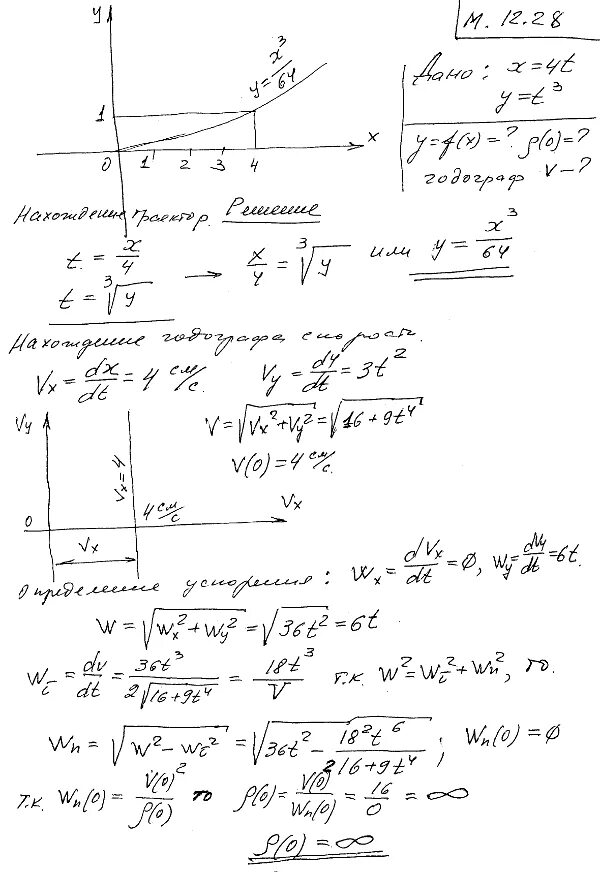 М. 12.28
y
y = x³/64
1
0 1 2 3 4 x
Дано: x = 4t
y = t³
y = f(x) = ? ρ(0) = ?
годограф V – ?
Нахождение траектор. Решение
t = x/4
t = ∛y → x/4 = ∛y или y = x³/64
Нахождение годографа скорости.
Vx = dx/dt = 4 см/с. Vy = dy/dt = 3t²
V = √(Vx² + Vy²) = √(16 + 9t⁴)
V(0) = 4 см/с.
Vy
Vx = 4
0 4 см/с Vx
Vx
Определение ускорения: Wx = dVx/dt = 0, Wy = dVy/dt = 6t.
W = √(Wx² + Wy²) = √(36t²) = 6t
Wτ = dv/dt = 36t³/(2√(16 + 9t⁴)) = 18t³/V т.к. W² = Wτ² + Wn², то.
Wn = √(W² – Wτ²) = √(36t² – 18²t⁶/(16 + 9t⁴)); Wn(0) = 0
т.к. Wn(0) = V(0)²/ρ(0) то ρ(0) = V(0)²/Wn(0) = 16/0 = ∞
ρ(0) = ∞